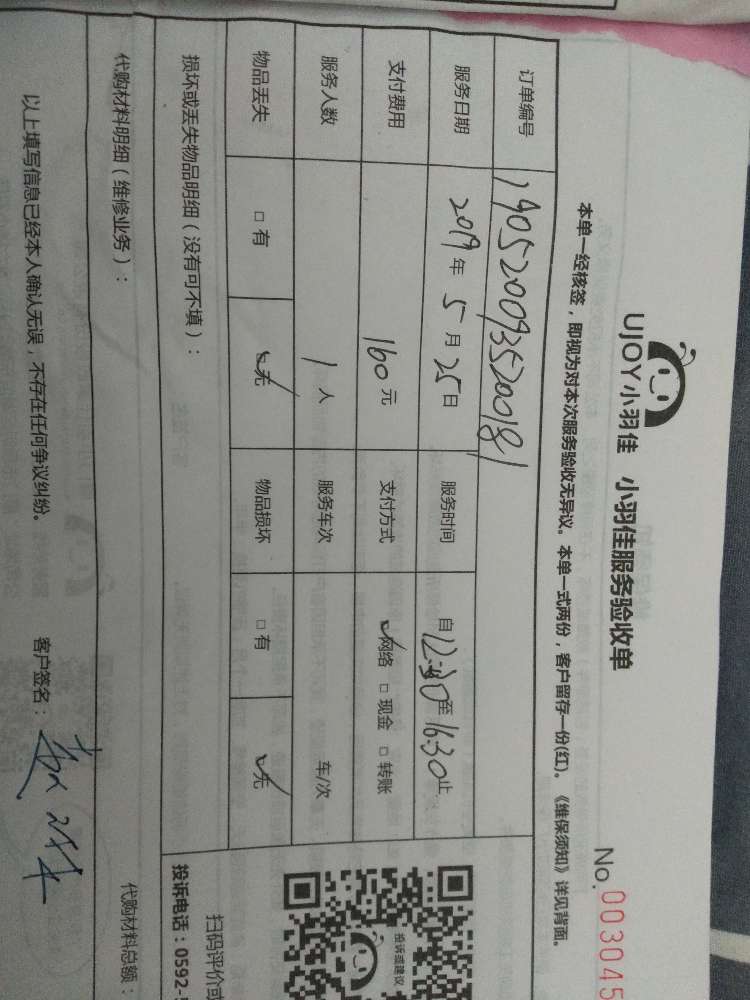 UJOY小羽佳 小羽佳服务验收单
No.003045
本单一经核签，即视为对本次服务验收无异议。本单一式两份，客户留存一份(红)。《维保须知》详见背面。
订单编号 1905200935200181
服务日期 2019年5月25日 服务时间 自12:30至16:30止
支付费用 160元 支付方式 ☑网络 □现金 □转账
服务人数 1人 服务车次 车/次
物品丢失 □有 ☑无 物品损坏 □有 ☑无
损坏或丢失物品明细（没有可不填）：
代购材料明细（维修业务）： 代购材料总额：
以上填写信息已经本人确认无误，不存在任何争议纠纷。 客户签名：
投诉或建议
扫码评价或
投诉电话：0592-5